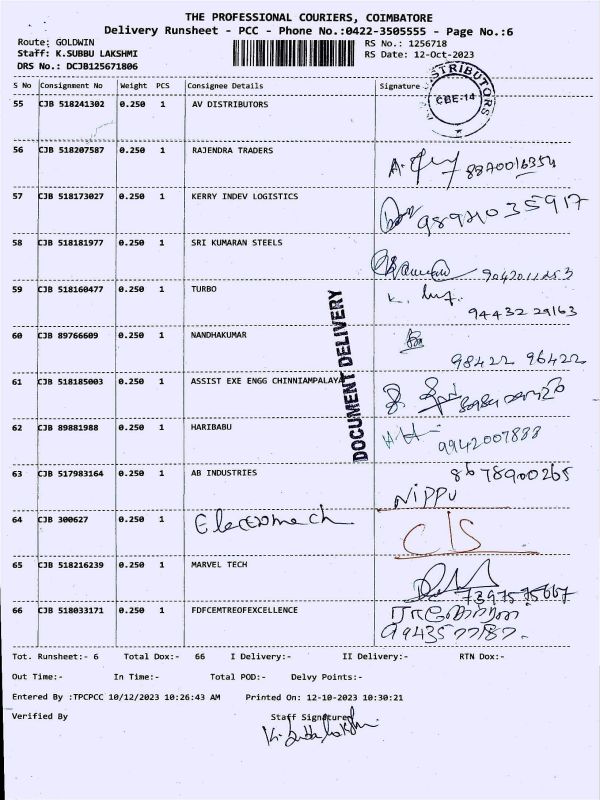 THE PROFESSIONAL COURIERS, COIMBATORE
Delivery Runsheet - PCC - Phone No.:0422-3505555 - Page No.:6
Route: GOLDWIN RS No.: 1256718
Staff: K.SUBBU LAKSHMI RS Date: 12-Oct-2023
DRS No.: DCJB125671806
S No Consignment No Weight PCS Consignee Details Signature
DISTRIBUTORS
CBE-14
55 CJB 518241302 0.250 1 AV DISTRIBUTORS
56 CJB 518207587 0.250 1 RAJENDRA TRADERS
8870016354
57 CJB 518173027 0.250 1 KERRY INDEV LOGISTICS
9894035917
58 CJB 518181977 0.250 1 SRI KUMARAN STEELS
59 CJB 518160477 0.250 1 TURBO
94432 29163
60 CJB 89766609 0.250 1 NANDHAKUMAR
98422 96422
61 CJB 518185003 0.250 1 ASSIST EXE ENGG CHINNIAMPALAYA
DOCUMENT DELIVERY
62 CJB 89881988 0.250 1 HARIBABU
9942007888
63 CJB 517983164 0.250 1 AB INDUSTRIES 8678900265
NIPPU
64 CJB 300627 0.250 1 Electromech CIS
65 CJB 518216239 0.250 1 MARVEL TECH
7397575667
66 CJB 518033171 0.250 1 FDFCEMTREOFEXCELLENCE
Tot. Runsheet:- 6 Total Dox:- 66 I Delivery:- II Delivery:- RTN Dox:-
Out Time:- In Time:- Total POD:- Delvy Points:-
Entered By :TPCPCC 10/12/2023 10:26:43 AM Printed On: 12-10-2023 10:30:21
Verified By Staff Signature
K. Subbulakshmi